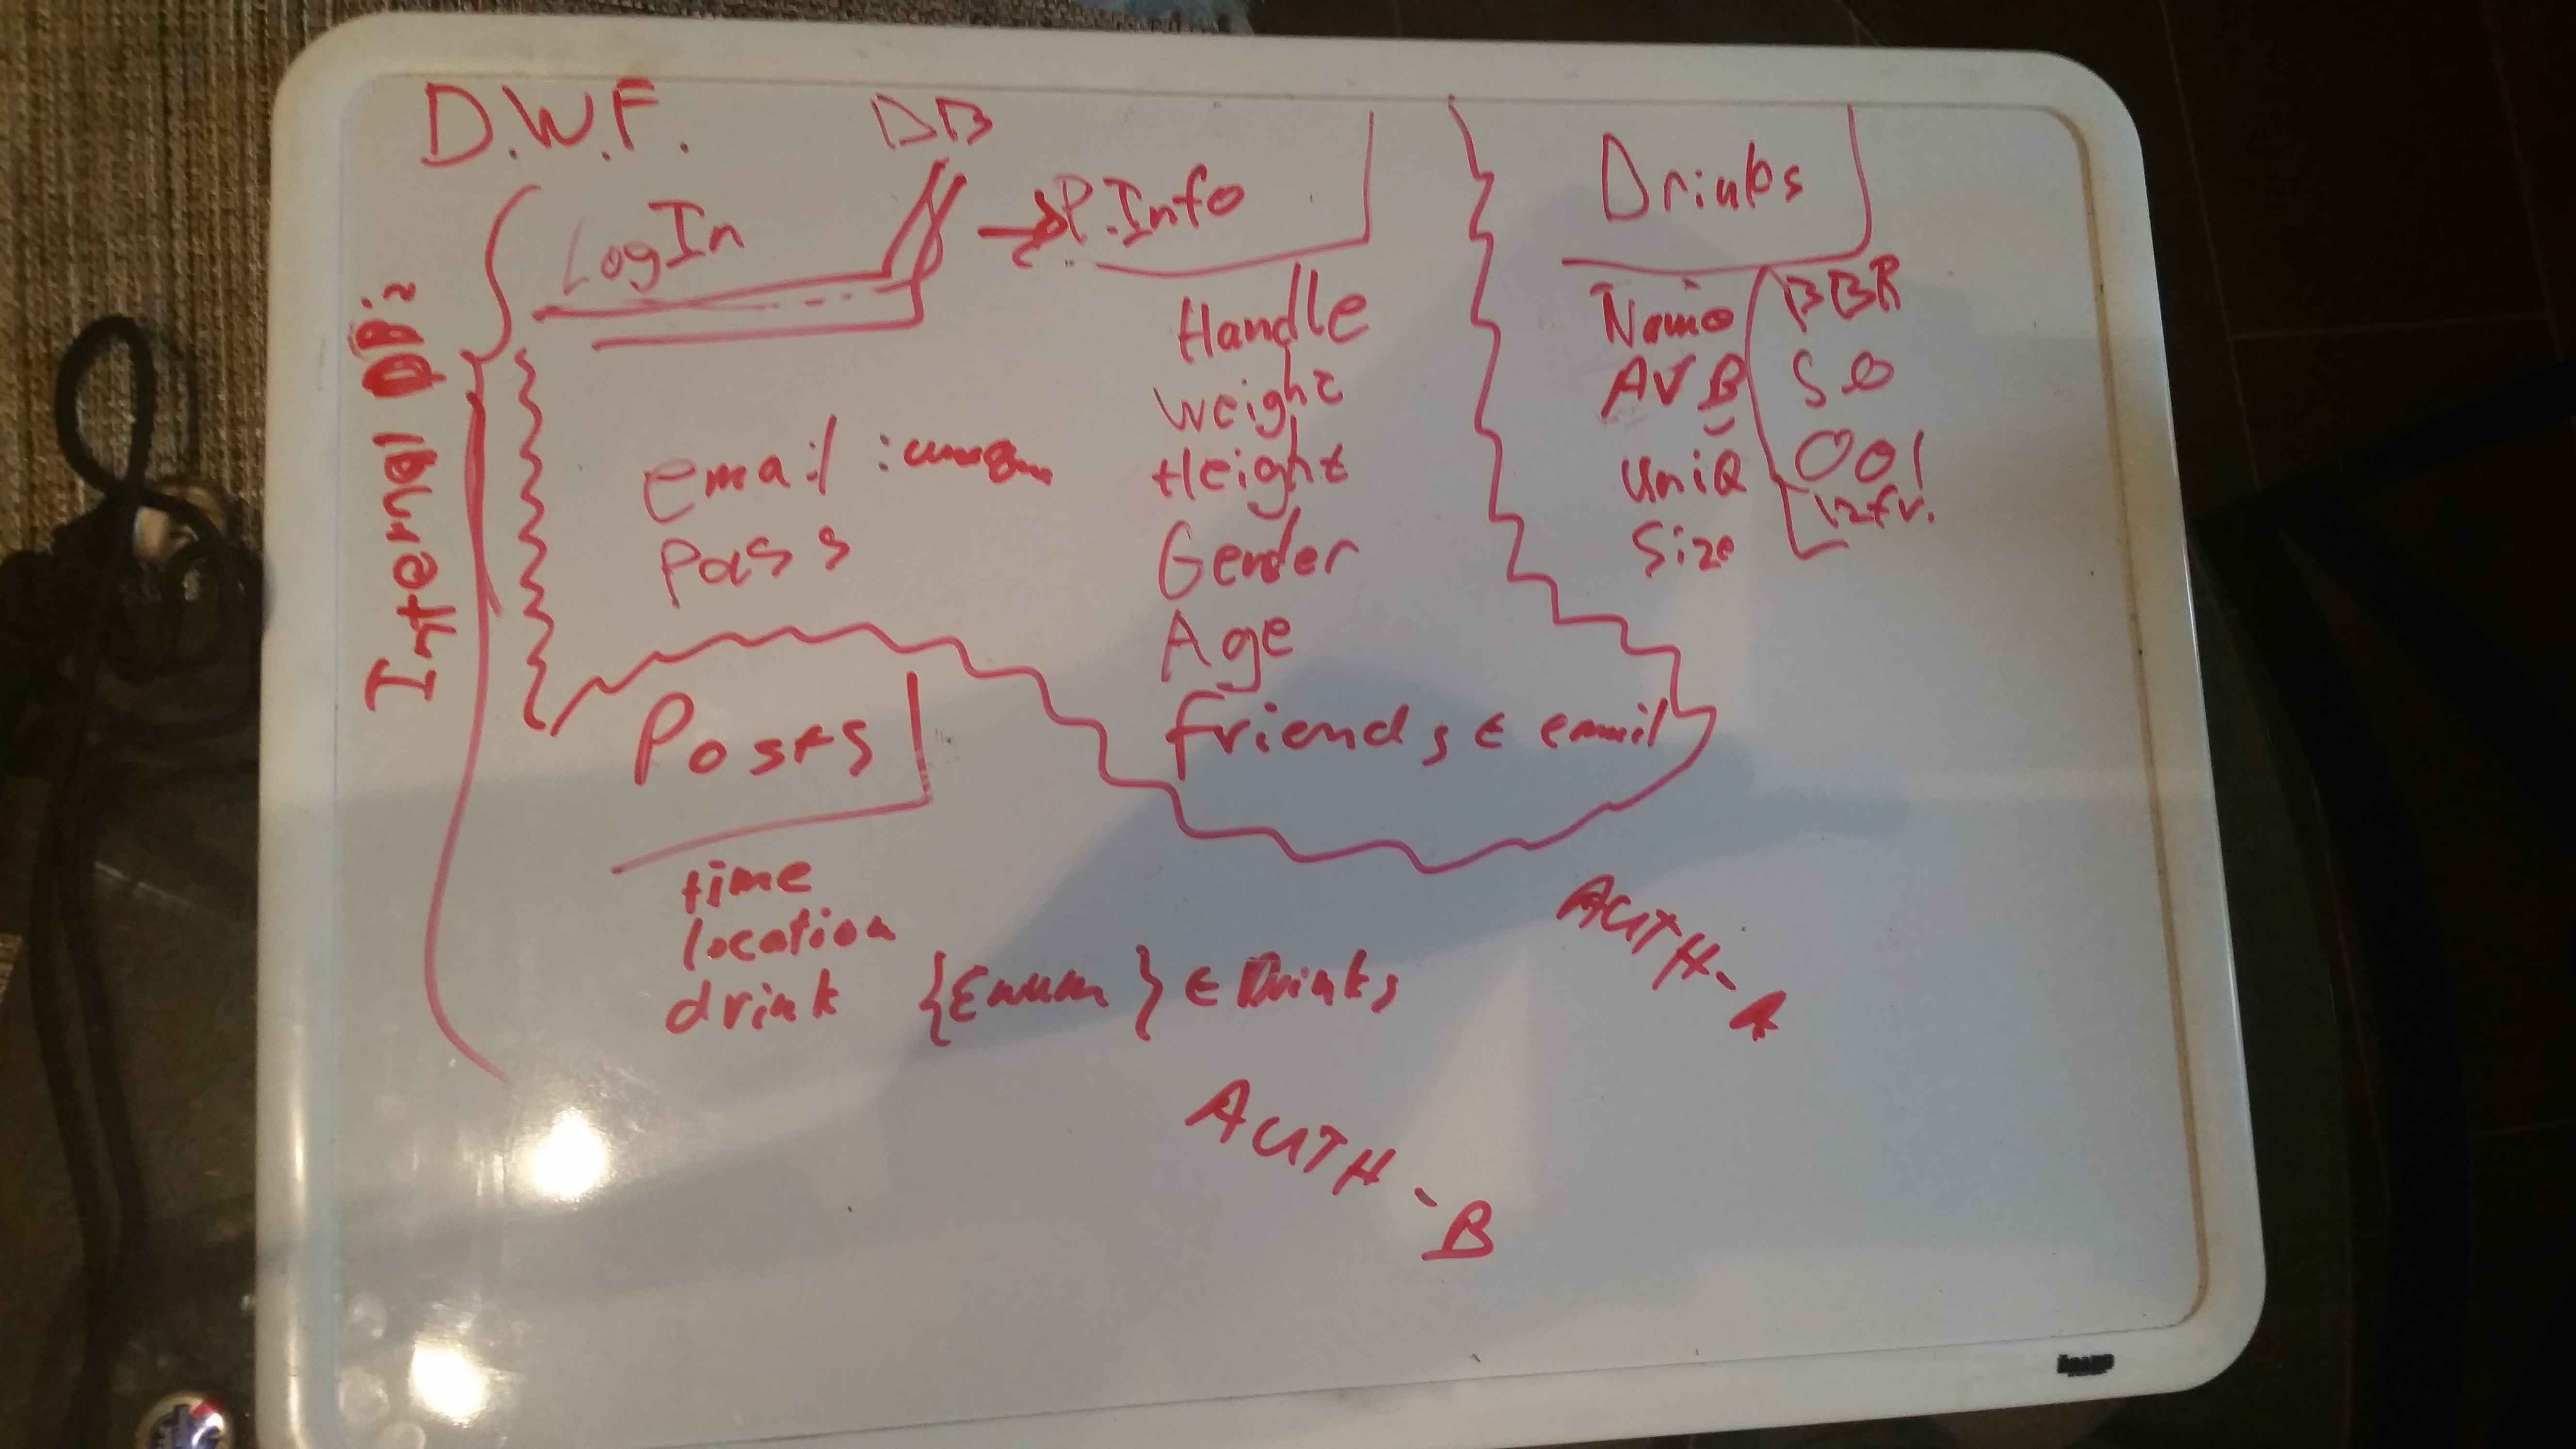 D.W.F.
DB
Internal DB:
LogIn
email :
Pass
P.Info
Handle
Weight
Height
Gender
Age
friends ∈ email
Drinks
Name
AVB
UniQ
Size
BBR
50
001
Posts
time
location
drink {Enum} ∈ Drinks
AUTH-A
AUTH-B